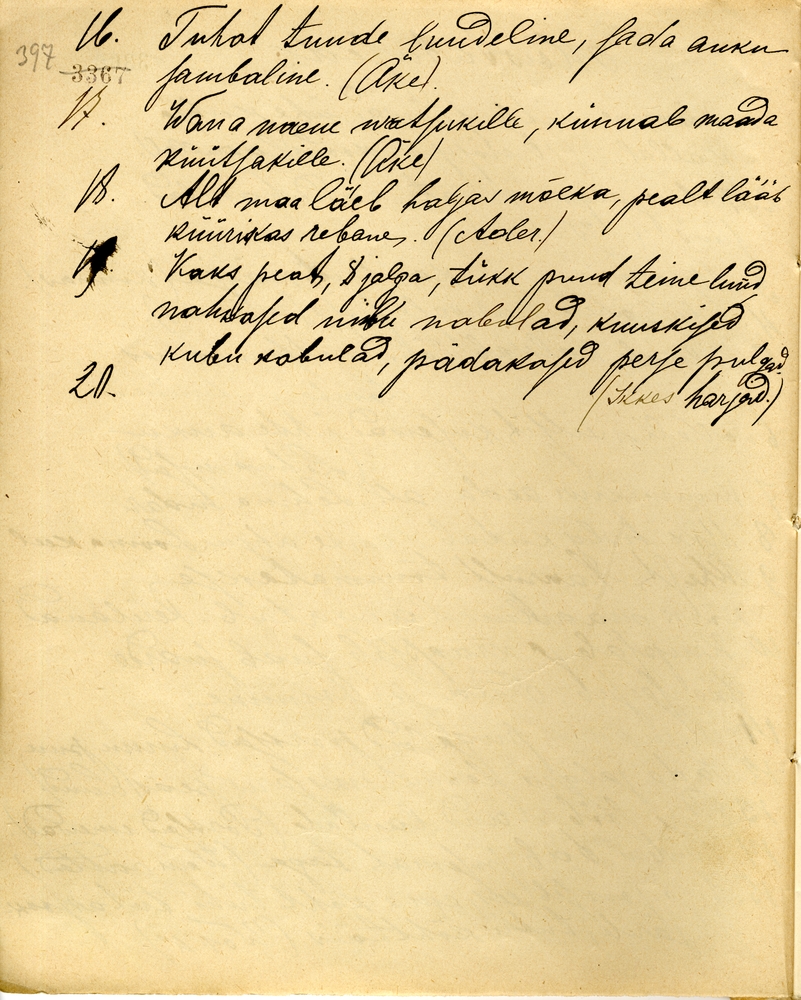 397
3367
16. Tuhat tuude luudeline, sada auku
sambaline. (Äke).
17. Wana naene watsukille, künnab maada
küütsakille. (Äke)
18. Alt maa läeb haljas mõeka, pealt lääb
küürikas rebane. (Ader.)
19. Kaks pead, 8 jalga, tükk puud teine luud
nahkased nabulad, kuuskised
kubu kabulad, pädakased perse pulgad.
20. (Ikkes harjad.)